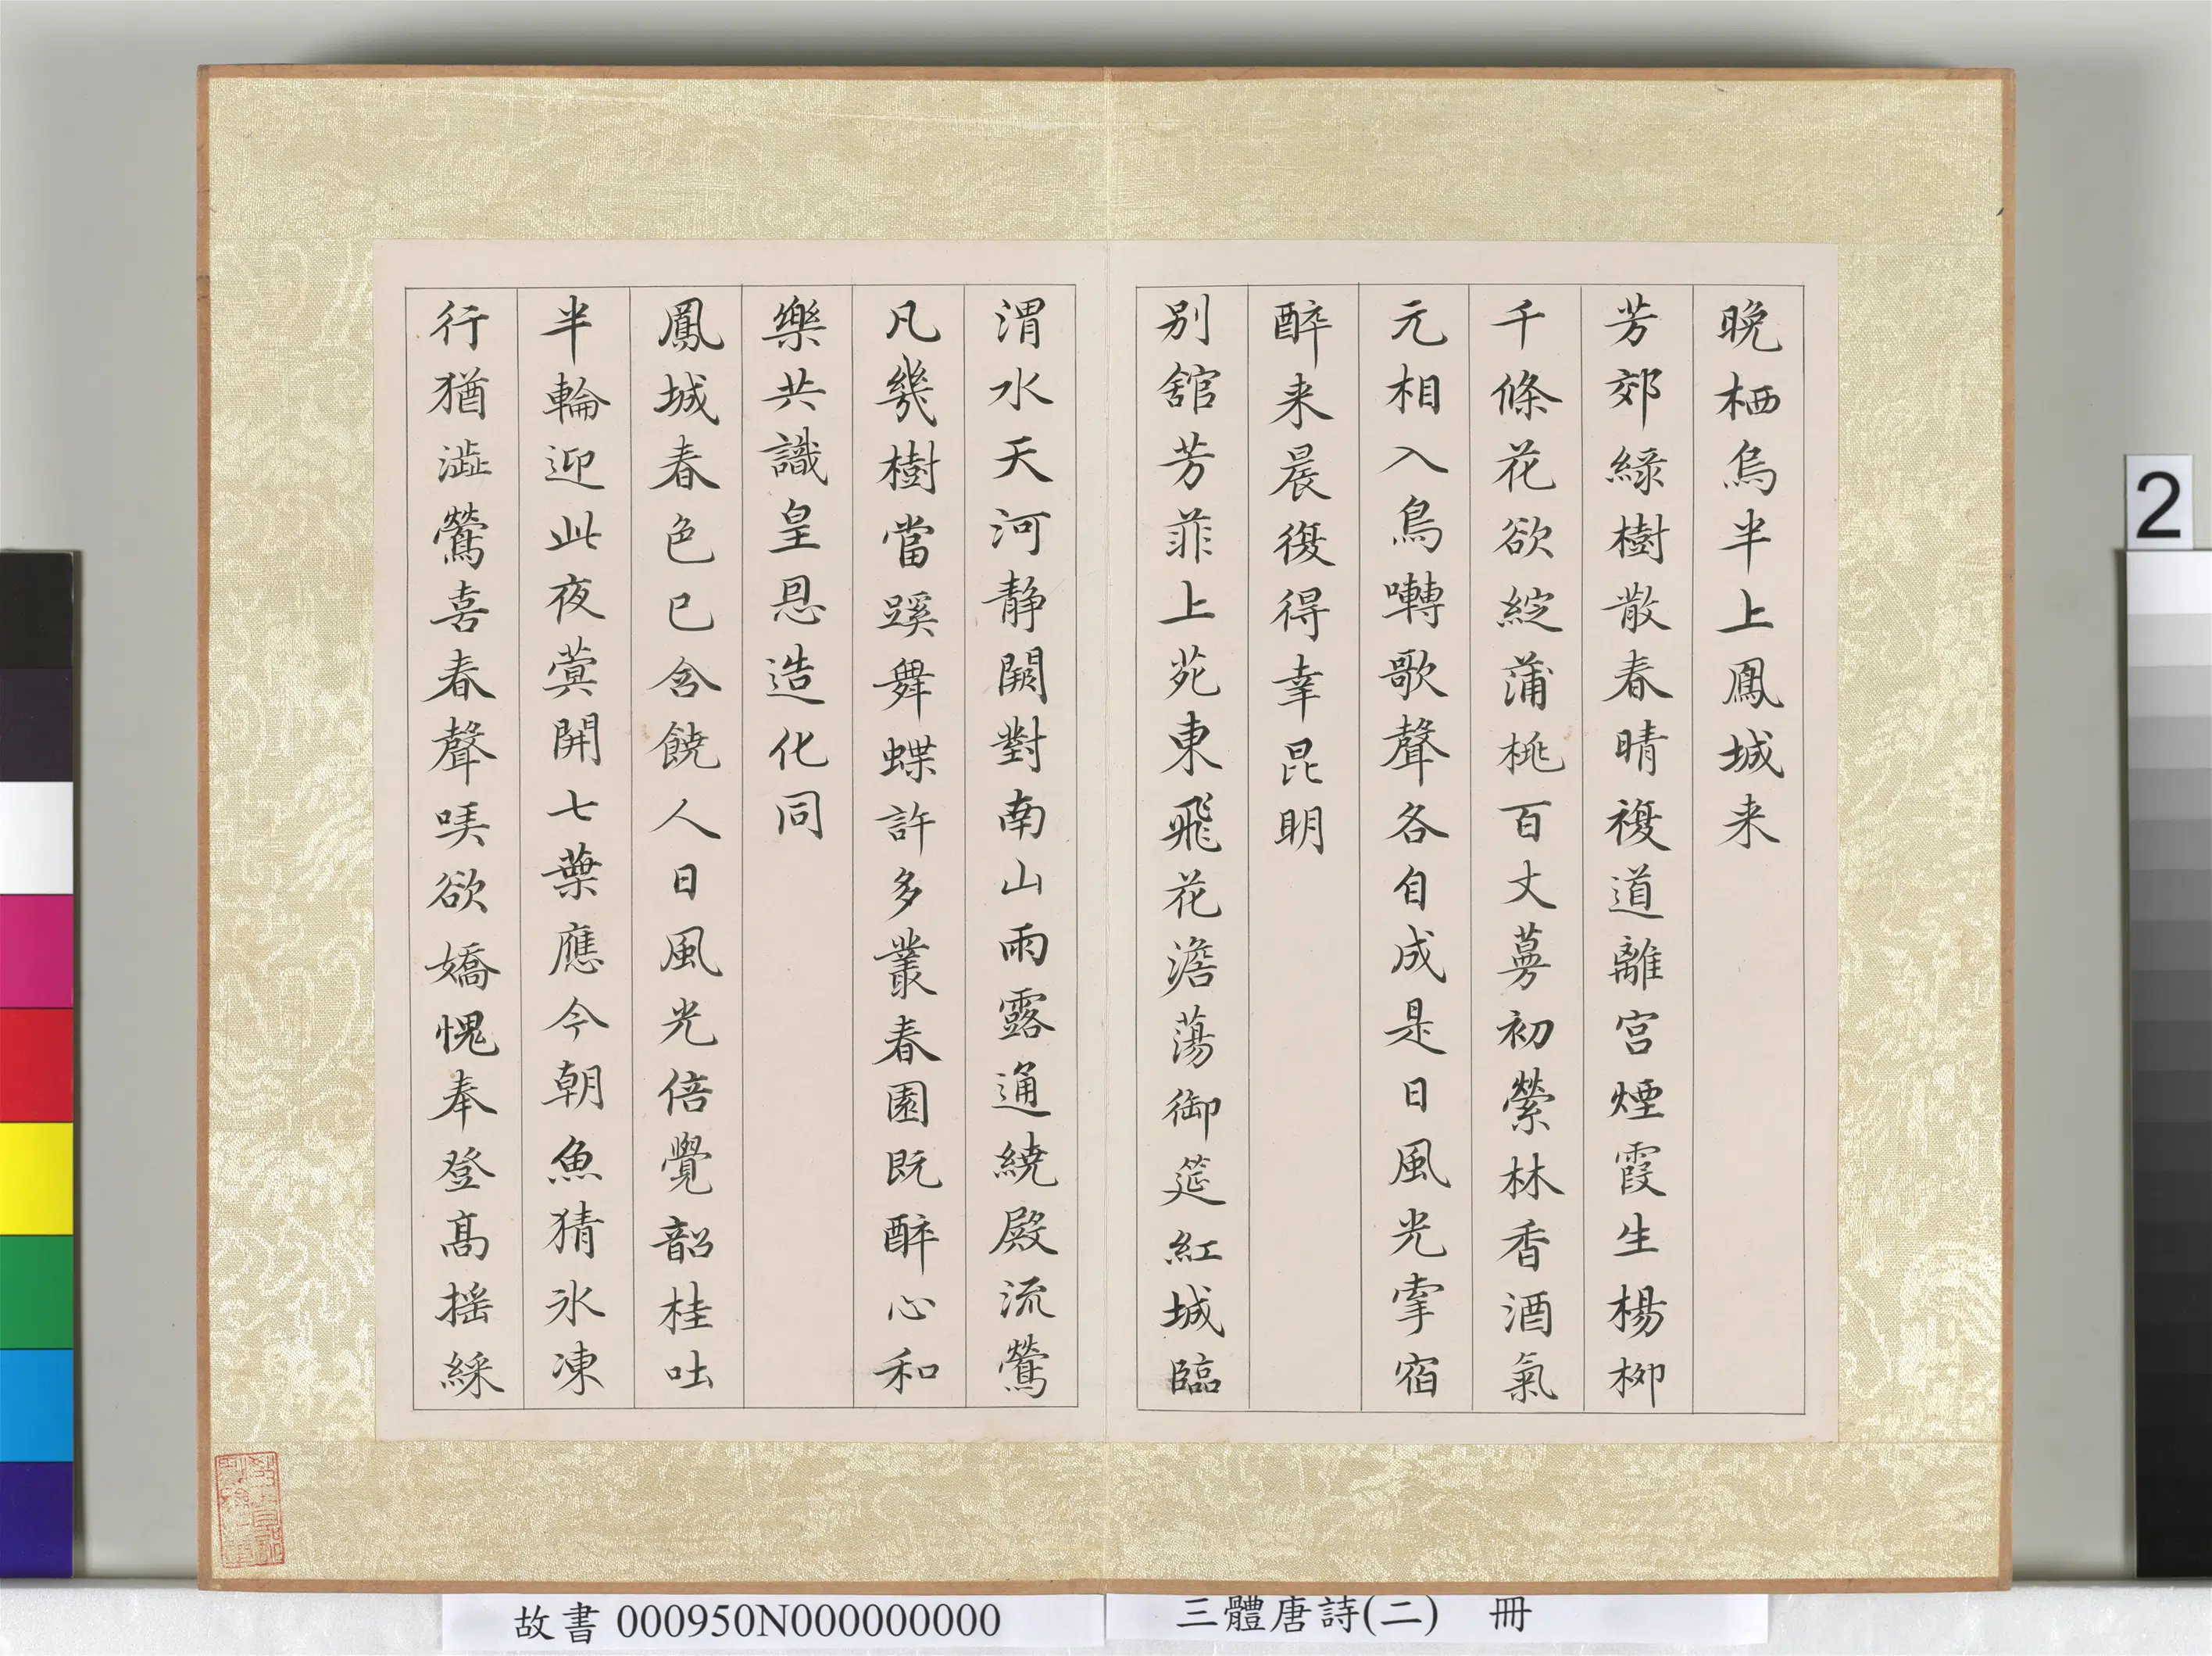 晚栖烏半上鳳城来
芳郊綠樹散春晴複道離宮煙霞生楊柳
千條花欲綻蒲桃百丈蔓初縈林香酒氣
元相入鳥囀歌聲各自成是日風光掌宿
醉来晨復得幸昆明
別舘芳菲上苑東飛花澹蕩御筵紅城臨
渭水天河静闕對南山雨露通繞殿流鶯
凡幾樹當蹊舞蝶許多叢春園既醉心和
樂共識皇恩造化同
鳳城春色已含饒人日風光倍覺韶桂吐
半輪迎此夜蓂開七葉應今朝魚猜氷凍
行猶澁鶯喜春聲㗛欲嬌愧奉登髙揺綵
2
故書 000950N000000000
三體唐詩(二) 冊